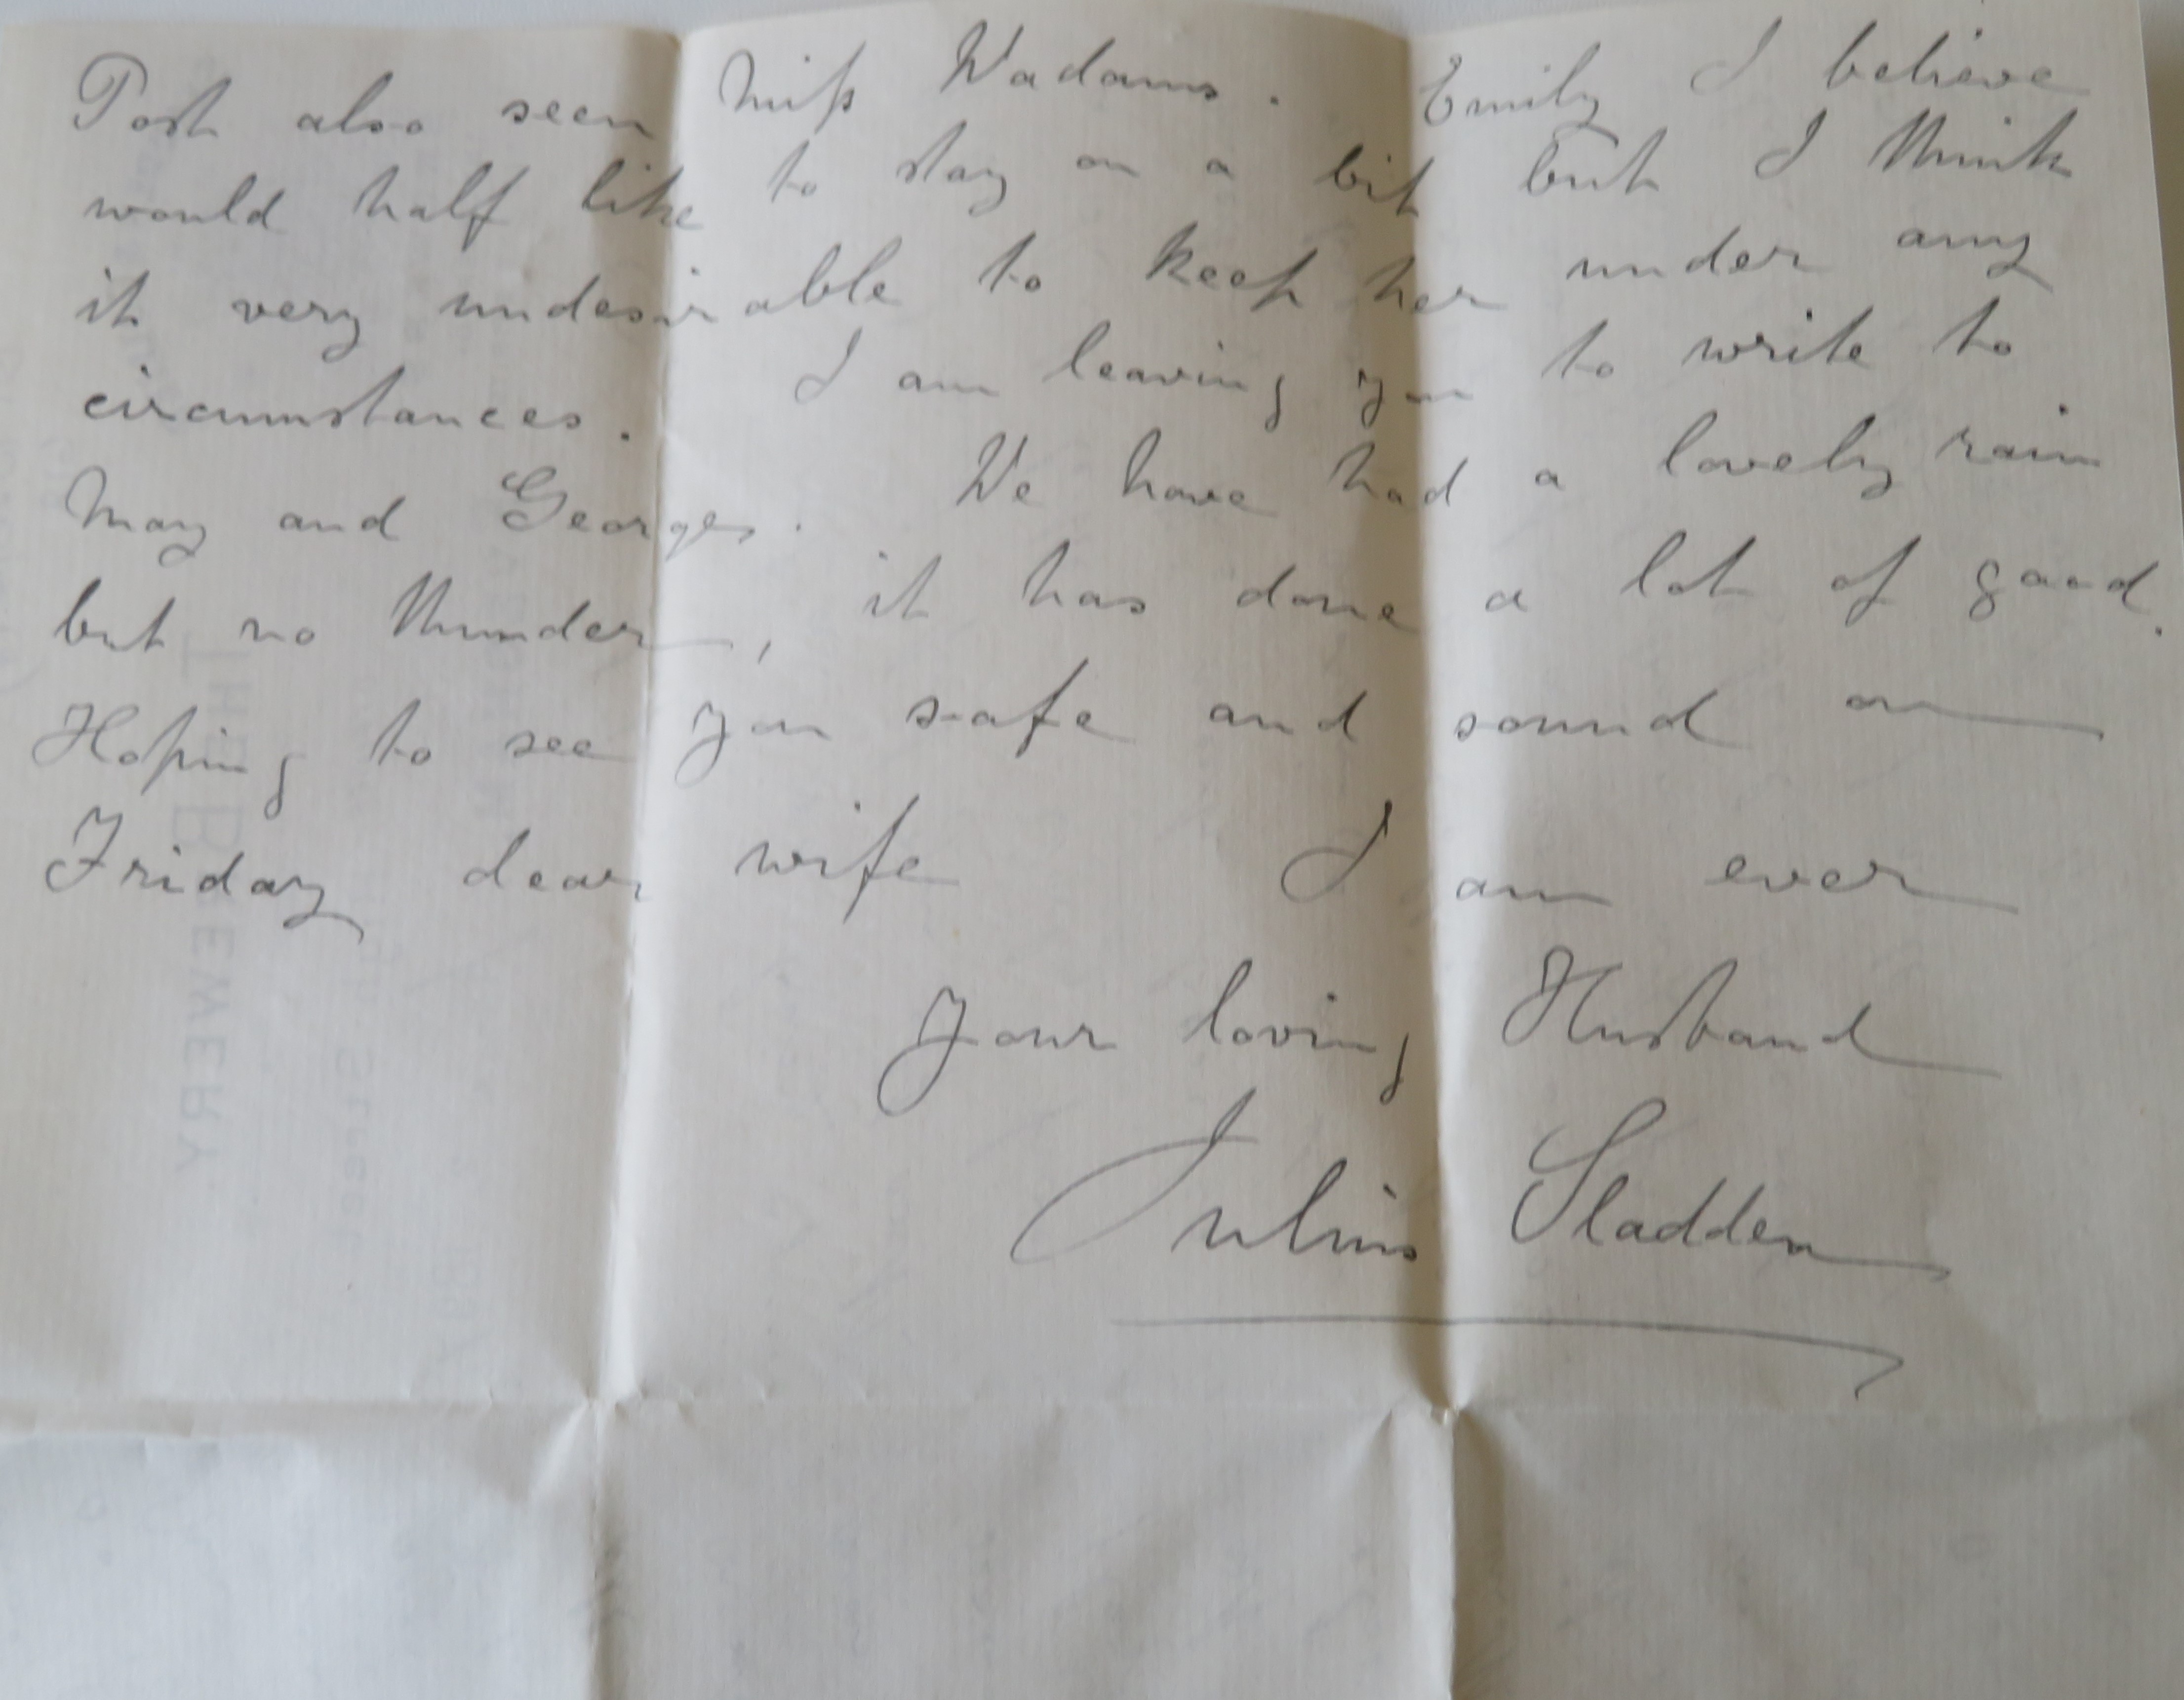 Post also seen Miss Wadams. Emily I believe
would half like to stay on a bit but I think
it very undesirable to keep her under any
circumstances. I am leaving you to write to
May and George. We have had a lovely rain
but no thunder, it has done a lot of good.
Hoping to see you safe and sound on
Friday dear wife I am ever
Your loving Husband
Julius Sladden
THE BREWERY